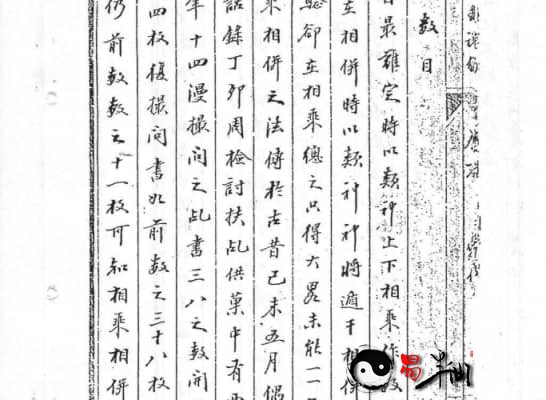 數目
目最難定時以類神上下相乘作數
在相併時以類神神將遁干相併
驗卻在相乘總之只得大畧未能一一
乘相併之法傳於古昔己未五月偶
語錄丁卯周檢討扶乩供菓中有
年十四漫撮問之乩書三八之數開
四枚後撮問書如前數之三十八枚
仍前數數之十一枚可知相乘相併
易